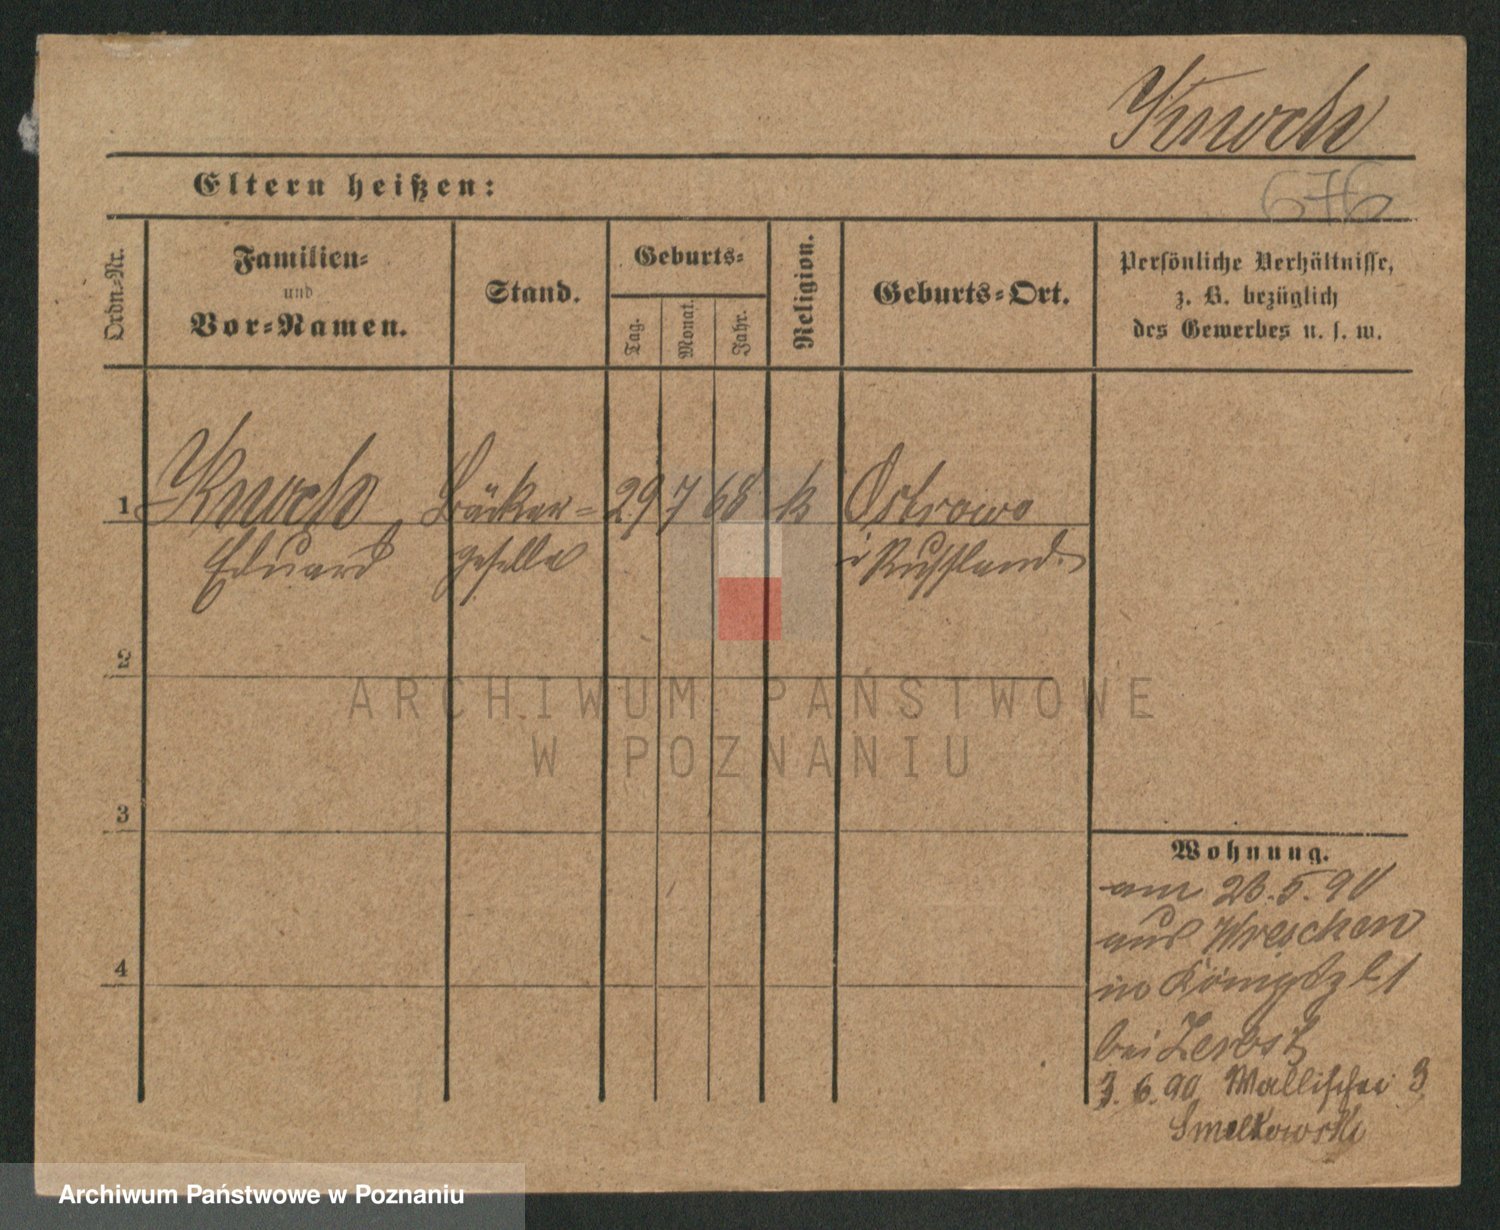 Knoch
676
Eltern heißen:
Ordn.-Nr.
Familien-
und
Vor-Namen.
Stand.
Geburts-
Tag.
Monat.
Jahr.
Religion.
Geburts-Ort.
Persönliche Verhältnisse,
z. B. bezüglich
des Gewerbes u. s. w.
1
Knoch Bäcker- 29 7 68 k Ostrowo
Eduard geselle i Russland
2
ARCHIWUM PAŃSTWOWE
W POZNANIU
3
4
Wohnung.
am 28.5.90
aus Wreschen
in Königspl 1
bei
3.6.90 Wallischei 3
Smelkowski
Archiwum Państwowe w Poznaniu